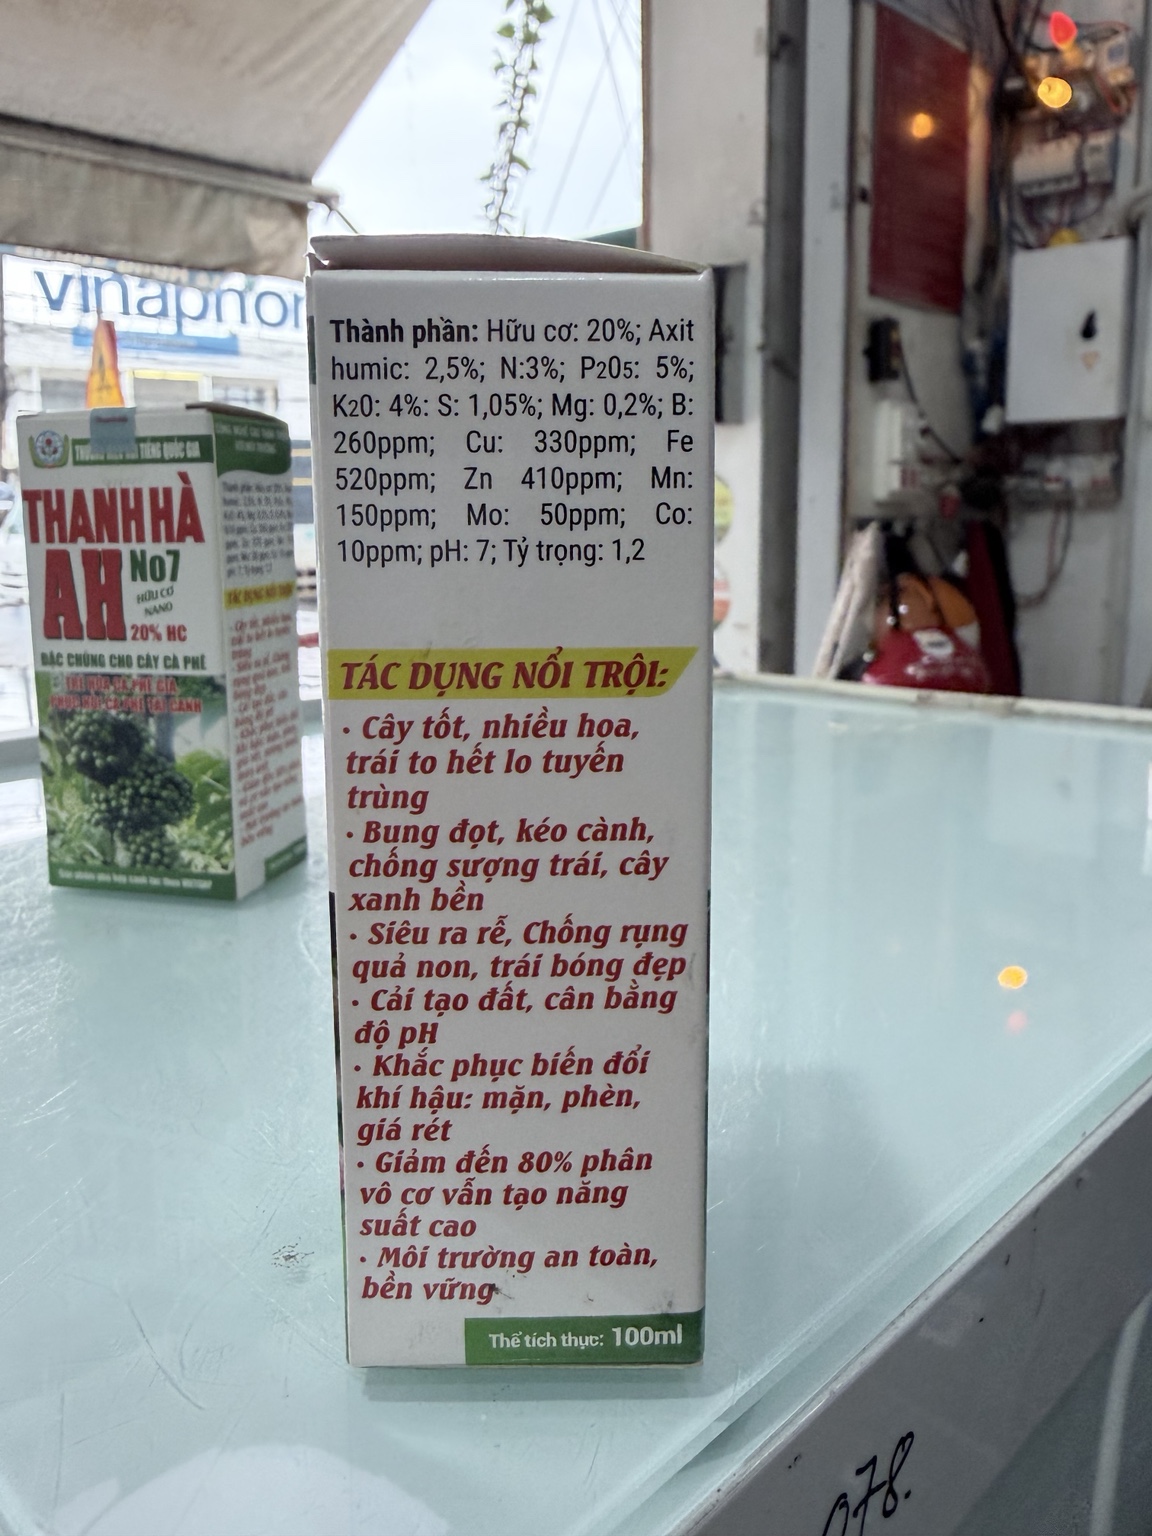 vinaphon
Thành phần: Hữu cơ: 20%; Axit
humic: 2,5%; N:3%; P2O5: 5%;
K2O: 4%: S: 1,05%; Mg: 0,2%; B:
260ppm; Cu: 330ppm; Fe
520ppm; Zn 410ppm; Mn:
150ppm; Mo: 50ppm; Co:
10ppm; pH: 7; Tỷ trọng: 1,2
TÁC DỤNG NỔI TRỘI:
· Cây tốt, nhiều hoa,
trái to hết lo tuyến
trùng
· Bung đọt, kéo cành,
chống sượng trái, cây
xanh bền
· Siêu ra rễ, Chống rụng
quả non, trái bóng đẹp
· Cải tạo đất, cân bằng
độ pH
· Khắc phục biến đổi
khí hậu: mặn, phèn,
giá rét
· Giảm đến 80% phân
vô cơ vẫn tạo năng
suất cao
· Môi trường an toàn,
bền vững
Thể tích thực: 100ml
TIẾNG QUỐC GIA
THANH HÀ
AH No7
HỮU CƠ
NANO
20% HC
ĐẶC CHỦNG CHO CÂY CÀ PHÊ
TRẺ HÓA CÀ PHÊ GIÀ
PHỤC HỒI CÀ PHÊ TÁI CANH
078.